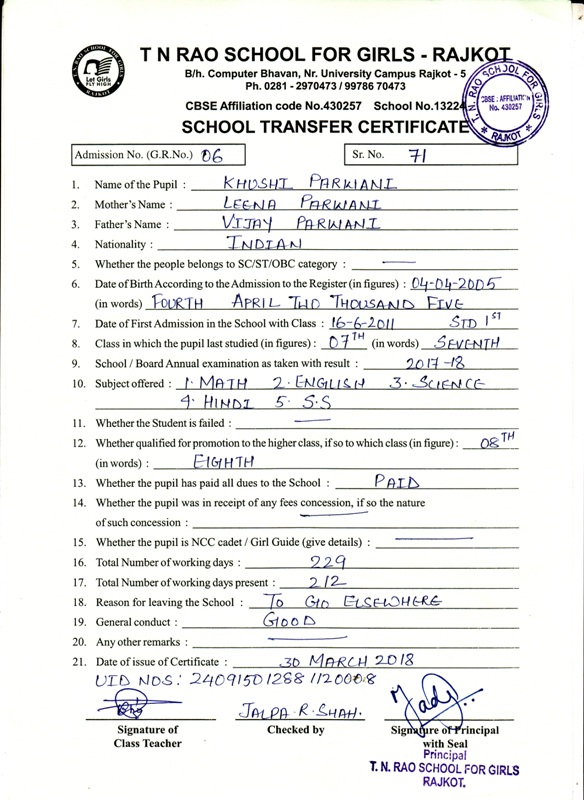 T. N. RAO SCHOOL FOR GIRLS
Let Girls
FLY HIGH
RAJKOT
T N RAO SCHOOL FOR GIRLS - RAJKOT
B/h. Computer Bhavan, Nr. University Campus Rajkot - 5
Ph. 0281 - 2970473 / 99786 70473
CBSE Affiliation code No.430257 School No.13224
T. N. RAO SCHOOL FOR GIRLS
CBSE : AFFILIATION
No. 430257
* RAJKOT *
SCHOOL TRANSFER CERTIFICATE
Admission No. (G.R.No.) 06 Sr. No. 71
1. Name of the Pupil : KHUSHI PARWANI
2. Mother's Name : LEENA PARWANI
3. Father's Name : VIJAY PARWANI
4. Nationality : INDIAN
5. Whether the people belongs to SC/ST/OBC category : —
6. Date of Birth According to the Admission to the Register (in figures) : 04-04-2005
(in words) FOURTH APRIL TWO THOUSAND FIVE
7. Date of First Admission in the School with Class : 16-6-2011 STD 1ST
8. Class in which the pupil last studied (in figures) : 07TH (in words) SEVENTH
9. School / Board Annual examination as taken with result : 2017-18
10. Subject offered : 1. MATH 2. ENGLISH 3. SCIENCE
4. HINDI 5. S.S
11. Whether the Student is failed : —
12. Whether qualified for promotion to the higher class, if so to which class (in figure) : 08TH
(in words) : EIGHTH
13. Whether the pupil has paid all dues to the School : PAID
14. Whether the pupil was in receipt of any fees concession, if so the nature
of such concession : —
15. Whether the pupil is NCC cadet / Girl Guide (give details) : —
16. Total Number of working days : 229
17. Total Number of working days present : 212
18. Reason for leaving the School : TO GO ELSEWHERE
19. General conduct : GOOD
20. Any other remarks : —
21. Date of issue of Certificate : 30 MARCH 2018
UID NOS: 240915012881120008
JALPA. R. SHAH.
Signature of Checked by Signature of Principal
Class Teacher with Seal
Principal
T. N. RAO SCHOOL FOR GIRLS
RAJKOT.